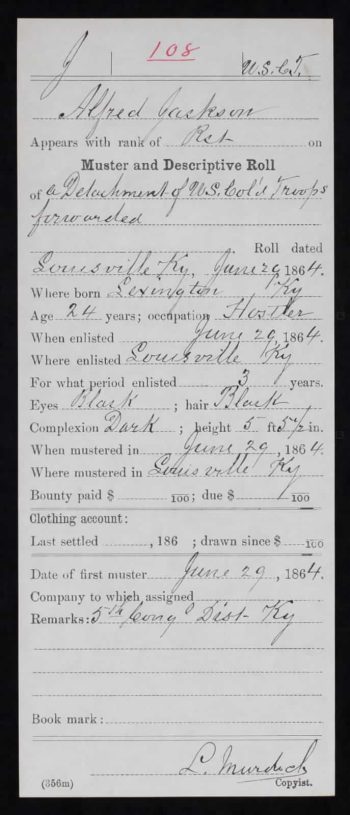 J | 108 | U.S.C.T.
Alfred Jackson
Appears with rank of Rct on
Muster and Descriptive Roll
of a Detachment of U.S. Col'd Troops
forwarded
Roll dated
Louisville Ky, June 29, 1864.
Where born Lexington Ky
Age 24 years; occupation Hostler
When enlisted June 29, 1864.
Where enlisted Louisville Ky
For what period enlisted 3 years.
Eyes Black ; hair Black
Complexion Dark ; height 5 ft. 5 1/2 in.
When mustered in June 29, 1864.
Where mustered in Louisville Ky
Bounty paid $ 100; due $ 100
Clothing account:
Last settled , 186 ; drawn since $ 100
Date of first muster June 29, 1864.
Company to which assigned
Remarks: 5th Cong'l Dist Ky
Book mark:
L. Murdock
(356m) Copyist.